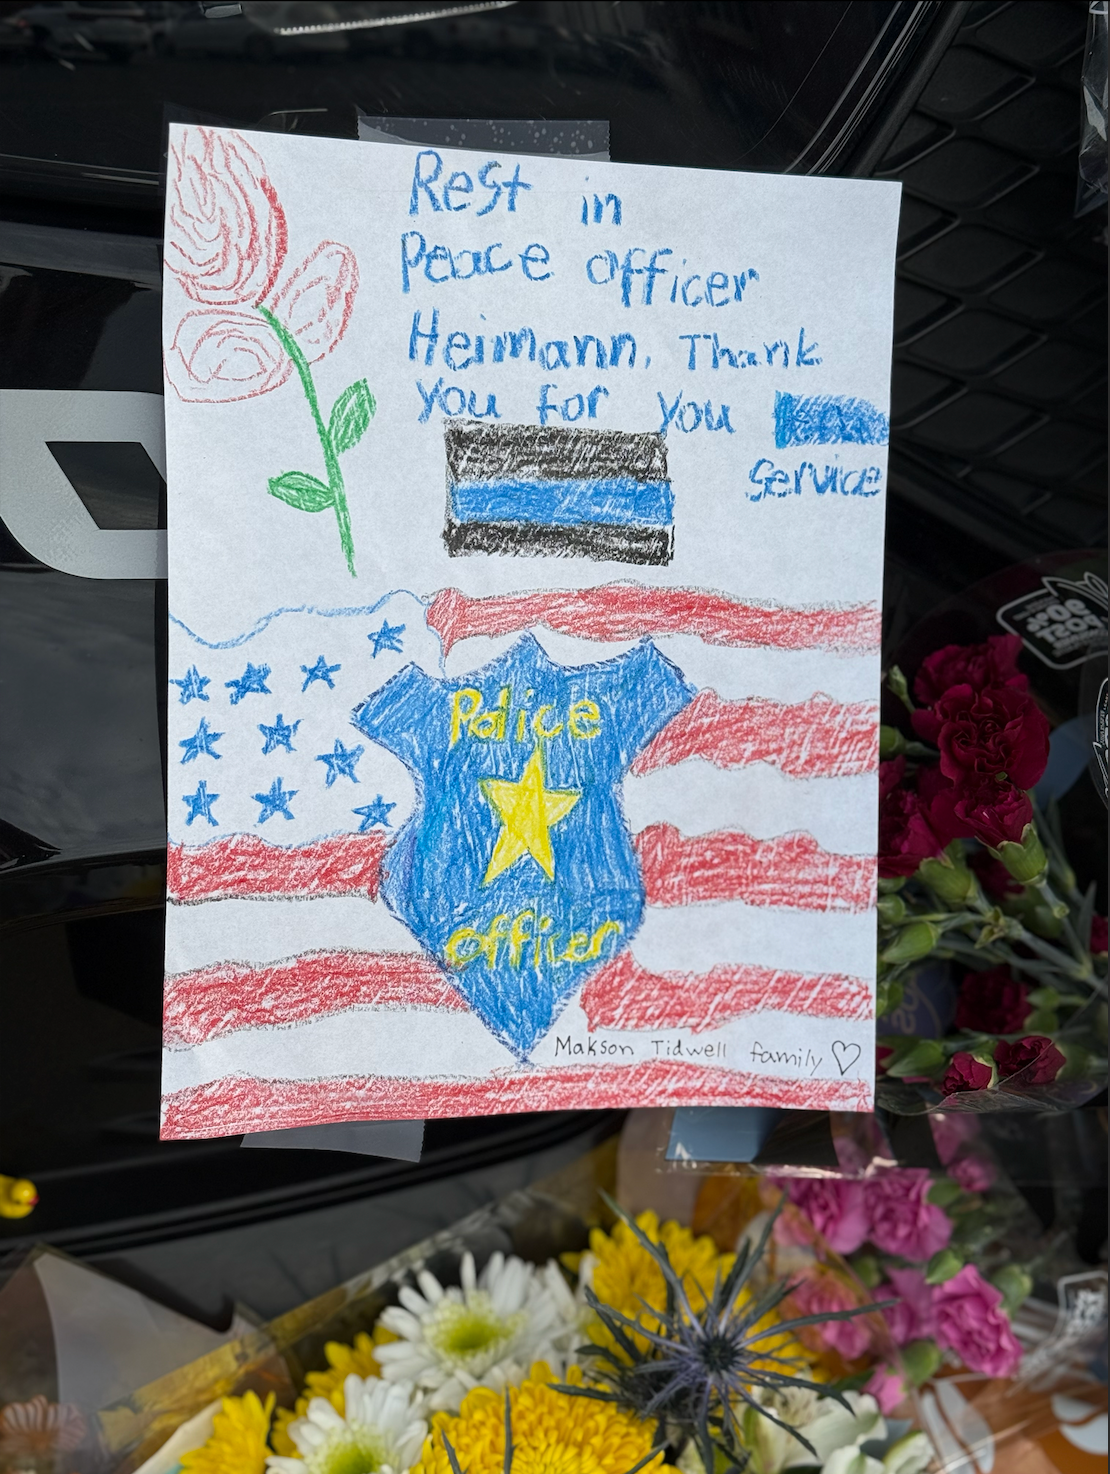 Rest in
Peace officer
Heimann. Thank
you for you
Service
Police
officer
Makson Tidwell family